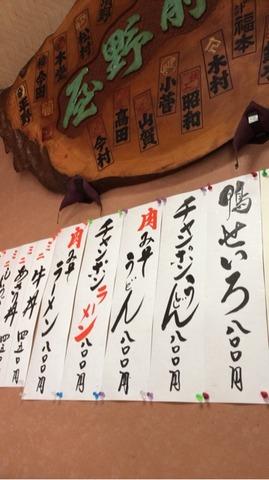 前野屋
福本
木村
昭和
小菅
山賀
高田
今村
松村
本堂
平野
鴨せいろ 八〇〇円
チャンポンうどん 八〇〇円
肉みそうどん 八〇〇円
チャンポンラーメン 八〇〇円
肉みそラーメン 八〇〇円
ミニ牛丼
ミニあさり丼 四五〇円